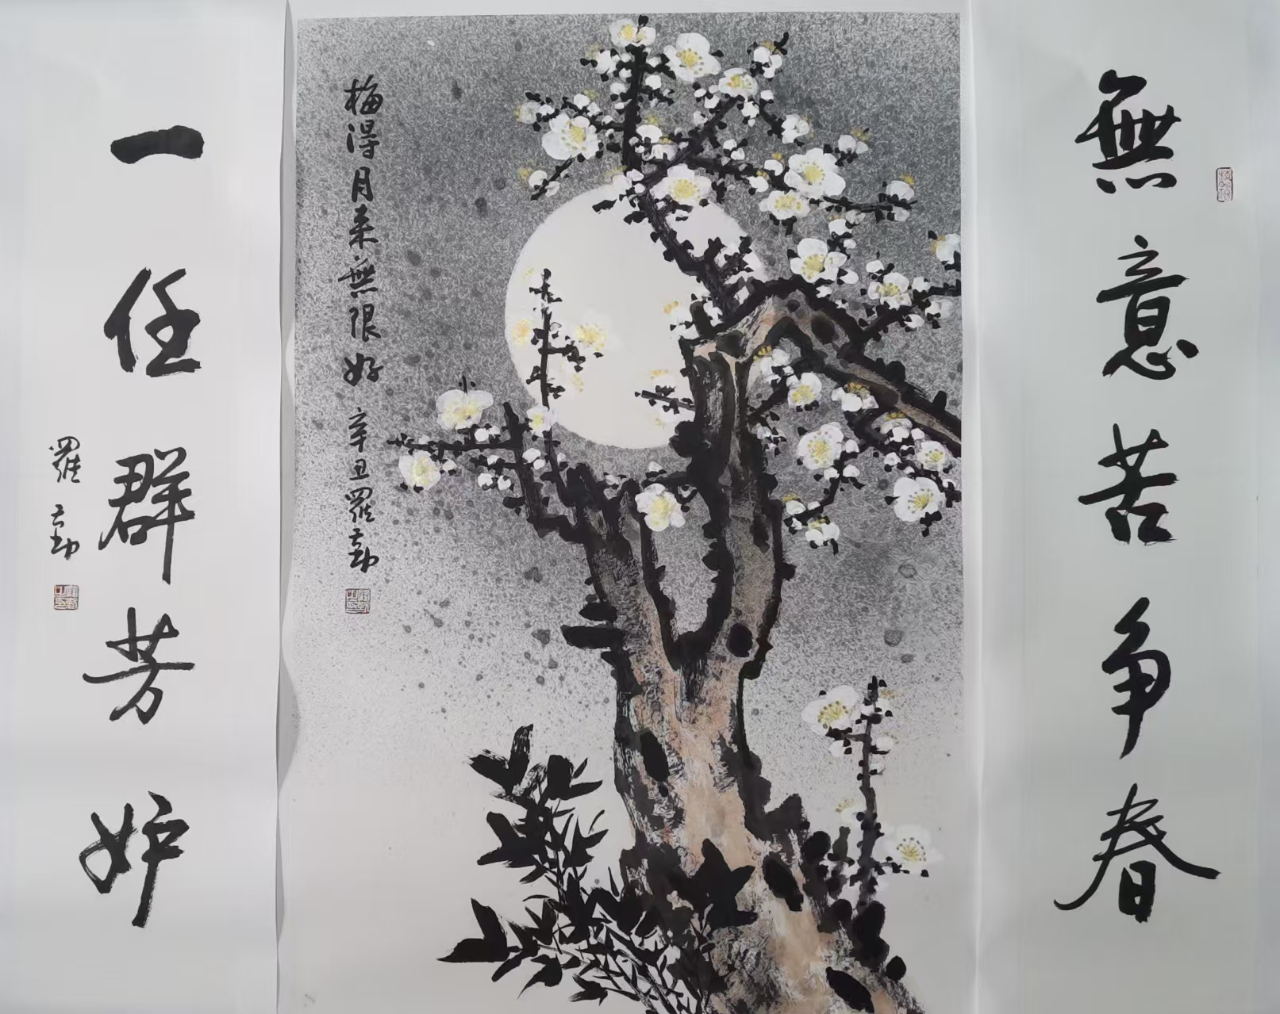 無意苦争春
梅得月来無限好
辛丑羅勤
一任群芳妒
羅勤